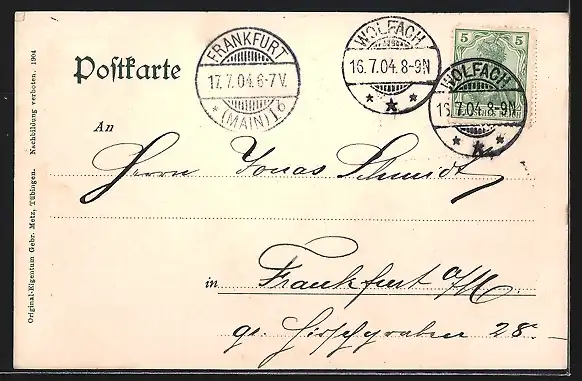 Postkarte
FRANKFURT
17.7.04.6-7V.
* (MAIN) 1 b
WOLFACH
16.7.04.8-9N
5 5
WOLFACH
16.7.04.8-9N
An
Herrn Jonas Schmidt
in Frankfurt a/M
gr. Hirschgraben 28.-
Original-Eigentum Gebr. Metz, Tübingen. Nachbildung verboten. 1904